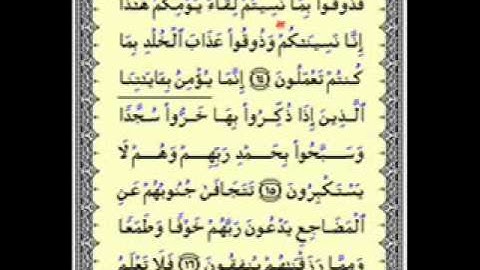 فَذُوقُوا۟ بِمَا نَسِيتُمْ لِقَآءَ يَوْمِكُمْ هَٰذَآ
إِنَّا نَسِينَٰكُمْ ۖ وَذُوقُوا۟ عَذَابَ ٱلْخُلْدِ بِمَا
كُنتُمْ تَعْمَلُونَ ١٤ إِنَّمَا يُؤْمِنُ بِـَٔايَٰتِنَا
ٱلَّذِينَ إِذَا ذُكِّرُوا۟ بِهَا خَرُّوا۟ سُجَّدًا
وَسَبَّحُوا۟ بِحَمْدِ رَبِّهِمْ وَهُمْ لَا
يَسْتَكْبِرُونَ ١٥ تَتَجَافَىٰ جُنُوبُهُمْ عَنِ
ٱلْمَضَاجِعِ يَدْعُونَ رَبَّهُمْ خَوْفًا وَطَمَعًا
وَمِمَّا رَزَقْنَٰهُمْ يُنفِقُونَ ١٦ فَلَا تَعْلَمُ